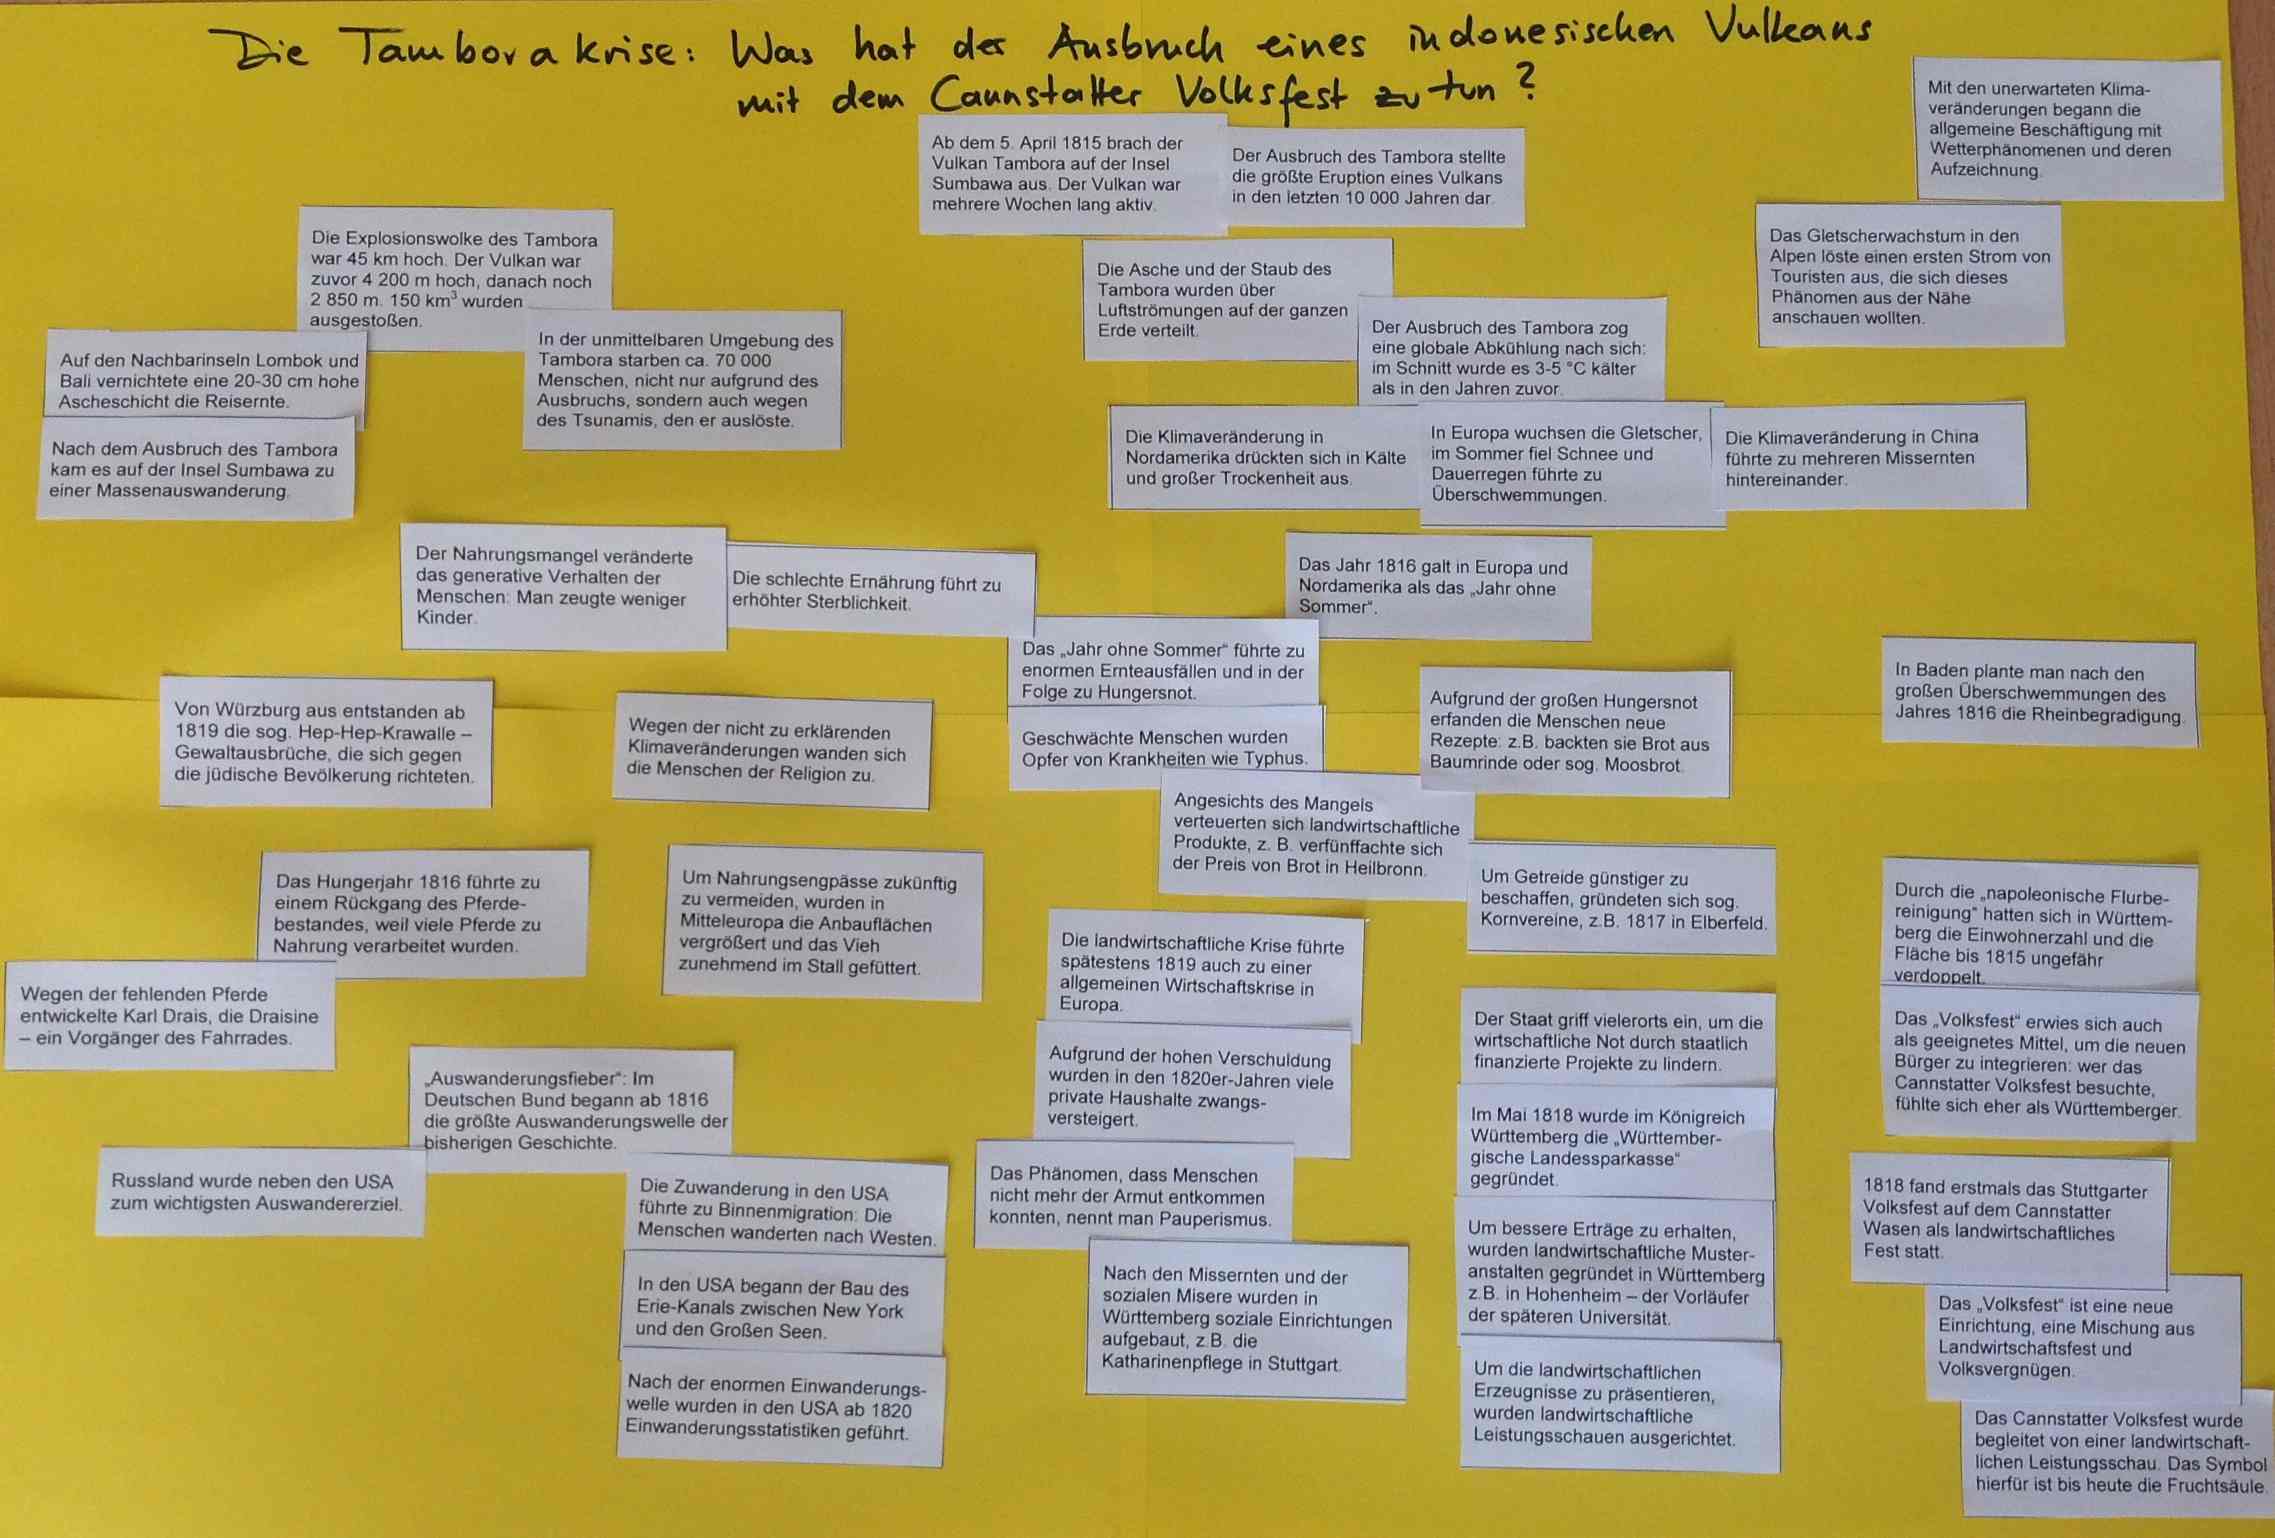 Die Tamborakrise: Was hat der Ausbruch eines indonesischen Vulkans
mit dem Cannstatter Volksfest zu tun?
Mit den unerwarteten Klima-
veränderungen begann die
allgemeine Beschäftigung mit
Wetterphänomenen und deren
Aufzeichnung.
Ab dem 5. April 1815 brach der
Vulkan Tambora auf der Insel
Sumbawa aus. Der Vulkan war
mehrere Wochen lang aktiv.
Der Ausbruch des Tambora stellte
die größte Eruption eines Vulkans
in den letzten 10 000 Jahren dar.
Das Gletscherwachstum in den
Alpen löste einen ersten Strom von
Touristen aus, die sich dieses
Phänomen aus der Nähe
anschauen wollten.
Die Explosionswolke des Tambora
war 45 km hoch. Der Vulkan war
zuvor 4 200 m hoch, danach noch
2 850 m. 150 km³ wurden
ausgestoßen.
Die Asche und der Staub des
Tambora wurden über
Luftströmungen auf der ganzen
Erde verteilt.
In der unmittelbaren Umgebung des
Tambora starben ca. 70 000
Menschen, nicht nur aufgrund des
Ausbruchs, sondern auch wegen
des Tsunamis, den er auslöste.
Der Ausbruch des Tambora zog
eine globale Abkühlung nach sich:
im Schnitt wurde es 3-5 °C kälter
als in den Jahren zuvor.
Auf den Nachbarinseln Lombok und
Bali vernichtete eine 20-30 cm hohe
Ascheschicht die Reisernte.
Nach dem Ausbruch des Tambora
kam es auf der Insel Sumbawa zu
einer Massenauswanderung.
Die Klimaveränderung in
Nordamerika drückten sich in Kälte
und großer Trockenheit aus.
In Europa wuchsen die Gletscher,
im Sommer fiel Schnee und
Dauerregen führte zu
Überschwemmungen.
Die Klimaveränderung in China
führte zu mehreren Missernten
hintereinander.
Der Nahrungsmangel veränderte
das generative Verhalten der
Menschen: Man zeugte weniger
Kinder.
Die schlechte Ernährung führt zu
erhöhter Sterblichkeit.
Das Jahr 1816 galt in Europa und
Nordamerika als das „Jahr ohne
Sommer“.
Das „Jahr ohne Sommer“ führte zu
enormen Ernteausfällen und in der
Folge zu Hungersnot.
In Baden plante man nach den
großen Überschwemmungen des
Jahres 1816 die Rheinbegradigung.
Von Würzburg aus entstanden ab
1819 die sog. Hep-Hep-Krawalle –
Gewaltausbrüche, die sich gegen
die jüdische Bevölkerung richteten.
Wegen der nicht zu erklärenden
Klimaveränderungen wanden sich
die Menschen der Religion zu.
Geschwächte Menschen wurden
Opfer von Krankheiten wie Typhus.
Aufgrund der großen Hungersnot
erfanden die Menschen neue
Rezepte: z.B. backten sie Brot aus
Baumrinde oder sog. Moosbrot.
Angesichts des Mangels
verteuerten sich landwirtschaftliche
Produkte, z. B. verfünffachte sich
der Preis von Brot in Heilbronn.
Das Hungerjahr 1816 führte zu
einem Rückgang des Pferde-
bestandes, weil viele Pferde zu
Nahrung verarbeitet wurden.
Um Nahrungsengpässe zukünftig
zu vermeiden, wurden in
Mitteleuropa die Anbauflächen
vergrößert und das Vieh
zunehmend im Stall gefüttert.
Um Getreide günstiger zu
beschaffen, gründeten sich sog.
Kornvereine, z.B. 1817 in Elberfeld.
Durch die „napoleonische Flurbe-
reinigung“ hatten sich in Württem-
berg die Einwohnerzahl und die
Fläche bis 1815 ungefähr
verdoppelt.
Die landwirtschaftliche Krise führte
spätestens 1819 auch zu einer
allgemeinen Wirtschaftskrise in
Europa.
Wegen der fehlenden Pferde
entwickelte Karl Drais, die Draisine
– ein Vorgänger des Fahrrades.
Der Staat griff vielerorts ein, um die
wirtschaftliche Not durch staatlich
finanzierte Projekte zu lindern.
Das „Volksfest“ erwies sich auch
als geeignetes Mittel, um die neuen
Bürger zu integrieren: wer das
Cannstatter Volksfest besuchte,
fühlte sich eher als Württemberger.
Aufgrund der hohen Verschuldung
wurden in den 1820er-Jahren viele
private Haushalte zwangs-
versteigert.
„Auswanderungsfieber“: Im
Deutschen Bund begann ab 1816
die größte Auswanderungswelle der
bisherigen Geschichte.
Im Mai 1818 wurde im Königreich
Württemberg die „Württember-
gische Landessparkasse“
gegründet.
Russland wurde neben den USA
zum wichtigsten Auswandererziel.
Die Zuwanderung in den USA
führte zu Binnenmigration: Die
Menschen wanderten nach Westen.
Das Phänomen, dass Menschen
nicht mehr der Armut entkommen
konnten, nennt man Pauperismus.
1818 fand erstmals das Stuttgarter
Volksfest auf dem Cannstatter
Wasen als landwirtschaftliches
Fest statt.
Um bessere Erträge zu erhalten,
wurden landwirtschaftliche Muster-
anstalten gegründet in Württemberg
z.B. in Hohenheim – der Vorläufer
der späteren Universität.
In den USA begann der Bau des
Erie-Kanals zwischen New York
und den Großen Seen.
Nach den Missernten und der
sozialen Misere wurden in
Württemberg soziale Einrichtungen
aufgebaut, z.B. die
Katharinenpflege in Stuttgart.
Das „Volksfest“ ist eine neue
Einrichtung, eine Mischung aus
Landwirtschaftsfest und
Volksvergnügen.
Nach der enormen Einwanderungs-
welle wurden in den USA ab 1820
Einwanderungsstatistiken geführt.
Um die landwirtschaftlichen
Erzeugnisse zu präsentieren,
wurden landwirtschaftliche
Leistungsschauen ausgerichtet.
Das Cannstatter Volksfest wurde
begleitet von einer landwirtschaft-
lichen Leistungsschau. Das Symbol
hierfür ist bis heute die Fruchtsäule.